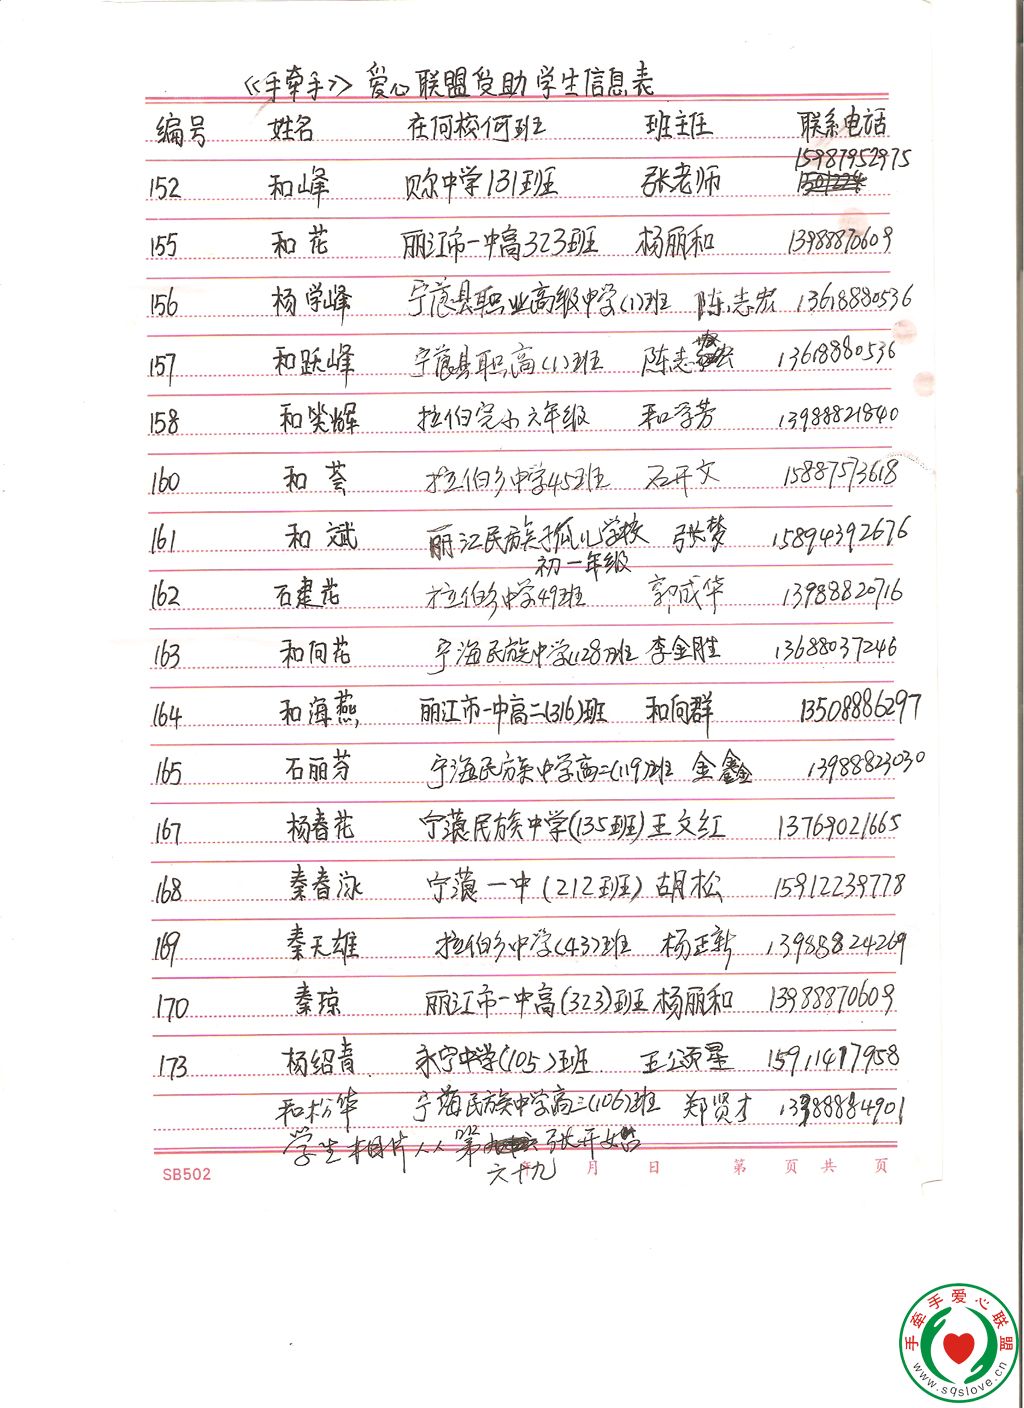 《手牵手》爱心联盟受助学生信息表
编号 姓名 在何校何班 班主任 联系电话
15987952975
152 和峰 贝尔中学131班 张老师
155 和花 丽江市一中高323班 杨丽和 13988870609
156 杨学峰 宁蒗县职业高级中学(1)班 陈志宏 13618880536
157 和跃峰 宁蒗县职高(1)班 陈志宏 13618880536
158 和笑辉 拉伯完小六年级 和学芳 13988821840
160 和荟 拉伯乡中学45班 石开文 15887573618
161 和斌 丽江民族孤儿学校 张梦 15894392676
初一年级
162 石建花 拉伯乡中学49班 郭成华 13988820716
163 和向花 宁海民族中学(128)班 李金胜 13688037246
164 和海燕 丽江市一中高二(316)班 和向群 13508886297
165 石丽芬 宁海民族中学高二(119)班 金鑫 13988823030
167 杨春花 宁蒗民族中学(135班) 王文红 13769021665
168 秦春泳 宁蒗一中(212班) 胡松 15912239778
169 秦天雄 拉伯乡中学(43)班 杨正新 13988824269
170 秦琼 丽江市一中高(323)班 杨丽和 13988870609
173 杨绍青 永宁中学(105)班 王公星 15911417958
和松华 宁蒗民族中学高三(106)班 郑贤才 13988884901
学生相片人人第 张开始
六十九
SB502 年 月 日 第 页 共 页
手牵手爱心联盟
www.sqslove.cn